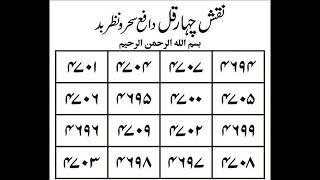 نقش چہار قل دافع سحر و نظر بد
بسم الله الرحمن الرحيم
۴۶۹۴ ۴۷۰۷ ۴۷۰۴ ۴۷۰۱
۴۷۰۵ ۴۷۰۰ ۴۶۹۵ ۴۷۰۶
۴۶۹۹ ۴۷۰۲ ۴۷۰۹ ۴۶۹۶
۴۷۰۸ ۴۶۹۷ ۴۶۹۸ ۴۷۰۳